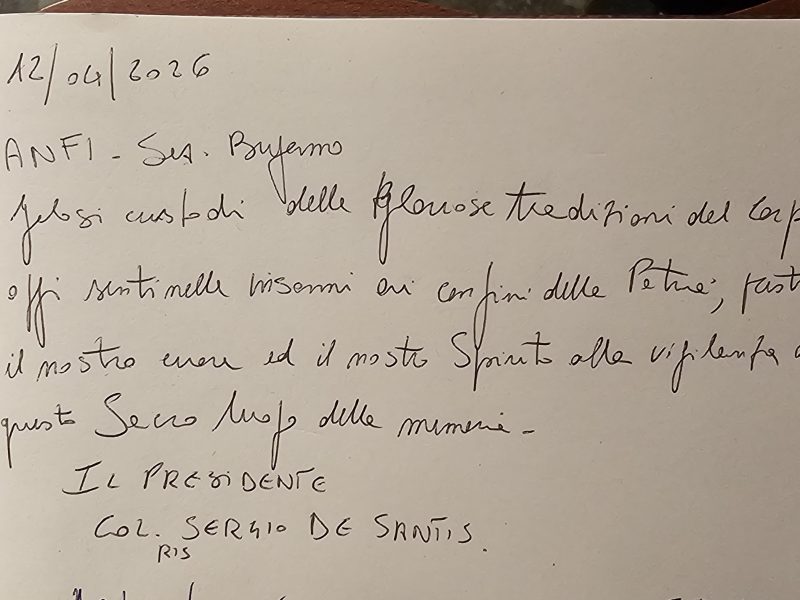 12/04/2026
ANFI - Sez. Bergamo
Gelosi custodi delle gloriose tradizioni del Corp
oggi sentinelle insonni ai confini della Patria,
il nostro cuore ed il nostro Spirito alla vigilanza
questo Sacro luogo della memoria -
IL PRESIDENTE
COL. SERGIO DE SANTIS.
RIS